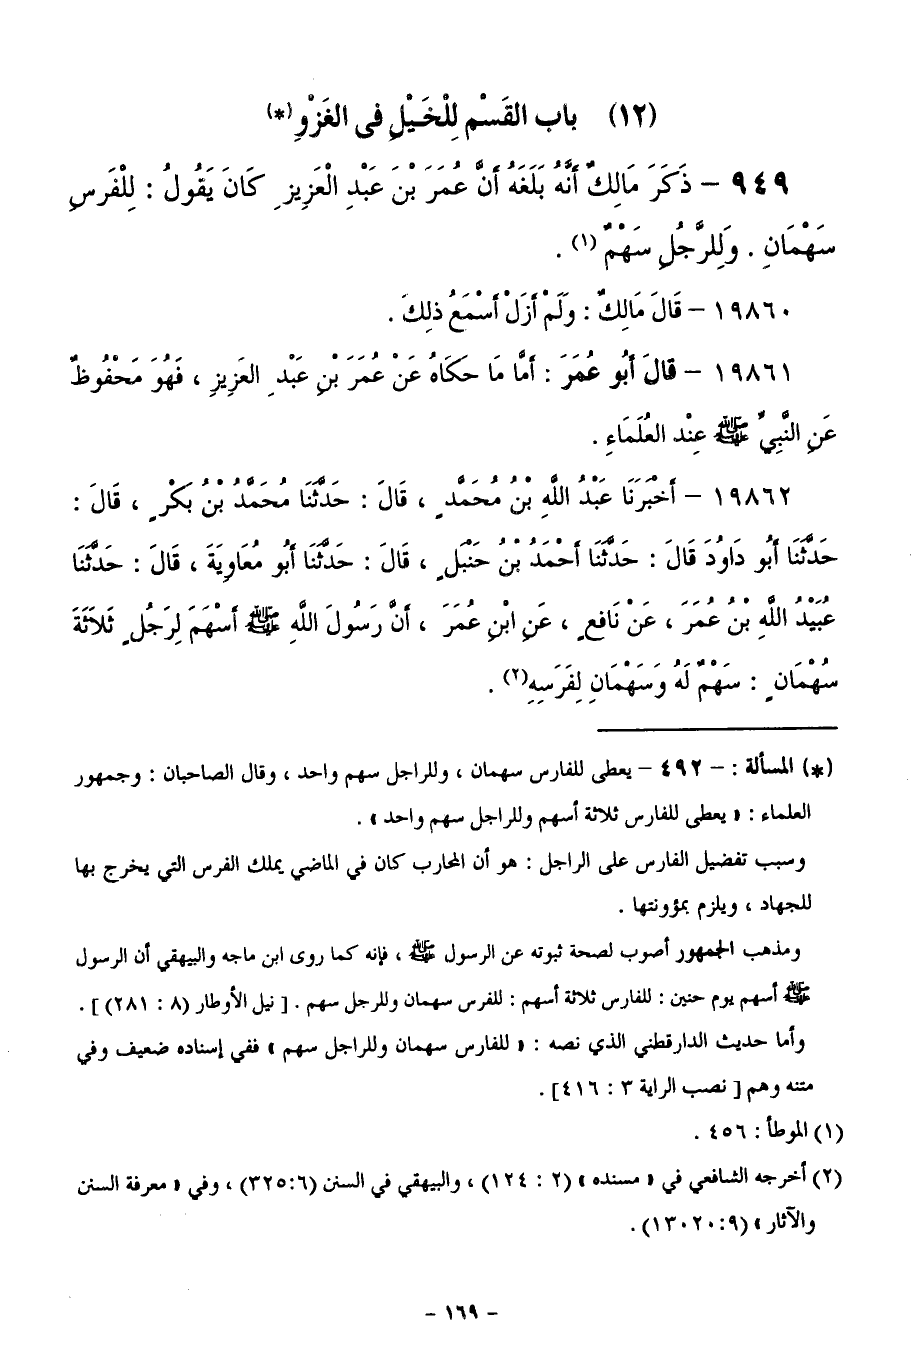 (١٢) باب القَسْمِ لِلْخَيْلِ فى الغَزْوِ (*)
٩٤٩ – ذَكَرَ مَالِكٌ أَنَّهُ بَلَغَهُ أَنَّ عُمَرَ بْنَ عَبْدِ الْعَزِيزِ كَانَ يَقُولُ : لِلْفَرسِ
سَهْمَانِ . وَلِلرَّجُلِ سَهْمٌ (١) .
١٩٨٦٠ – قَالَ مَالِكٌ : وَلَمْ أَزَلْ أَسْمَعُ ذلِكَ .
١٩٨٦١ – قالَ أَبُو عُمَرَ : أَمَّا مَا حَكَاهُ عَنْ عُمَرَ بْنِ عَبْدِ العَزِيزِ ، فَهُوَ مَحْفُوظٌ
عَنِ النَّبِيِّ ﷺ عِنْد العُلَمَاءِ .
١٩٨٦٢ – أَخْبَرَنَا عَبْدُ اللَّهِ بْنُ مُحَمَّدٍ ، قَالَ : حَدَّثَنَا مُحَمَّدُ بْنُ بَكْرٍ ، قَالَ :
حَدَّثَنَا أَبُو دَاوُدَ قَالَ : حَدَّثَنَا أَحْمَدُ بْنُ حَنْبَلٍ ، قَالَ : حَدَّثَنَا أَبُو مُعَاوِيَةَ ، قَالَ : حَدَّثَنَا
عُبَيْدُ اللَّهِ بْنُ عُمَرَ ، عَنْ نَافِعٍ ، عَنِ ابْنِ عُمَرَ ، أَنَّ رَسُولَ اللَّهِ ﷺ أَسْهَمَ لِرَجُلٍ ثَلَاثَةَ
سُهْمَانٍ : سَهْمٌ لَهُ وَسَهْمَانِ لِفَرَسِهِ(٢) .
(*) المسألة : – ٤٩٢ – يعطى للفارس سهمان ، وللراجل سهم واحد ، وقال الصاحبان : وجمهور
العلماء : « يعطى للفارس ثلاثة أسهم وللراجل سهم واحد » .
وسبب تفضيل الفارس على الراجل : هو أن المحارب كان في الماضي يملك الفرس التي يخرج بها
للجهاد ، ويلزم بمؤونتها .
ومذهب الجمهور أصوب لصحة ثبوته عن الرسول ﷺ ، فإنه كما روى ابن ماجه والبيهقي أن الرسول
ﷺ أسهم يوم حنين : للفارس ثلاثة أسهم : للفرس سهمان وللرجل سهم . [ نيل الأوطار (٨ : ٢٨١) ] .
وأما حديث الدارقطني الذي نصه : « للفارس سهمان وللراجل سهم » ففي إسناده ضعيف وفي
متنه وهم [ نصب الراية ٣ : ٤١٦] .
(١) الموطأ : ٤٥٦ .
(٢) أخرجه الشافعي في « مسنده » (٢ : ١٢٤) ، والبيهقي في السنن (٦:٣٢٥) ، وفي « معرفة السنن
والآثار » (٩:١٣٠٢٠) .
– ١٦٩ –